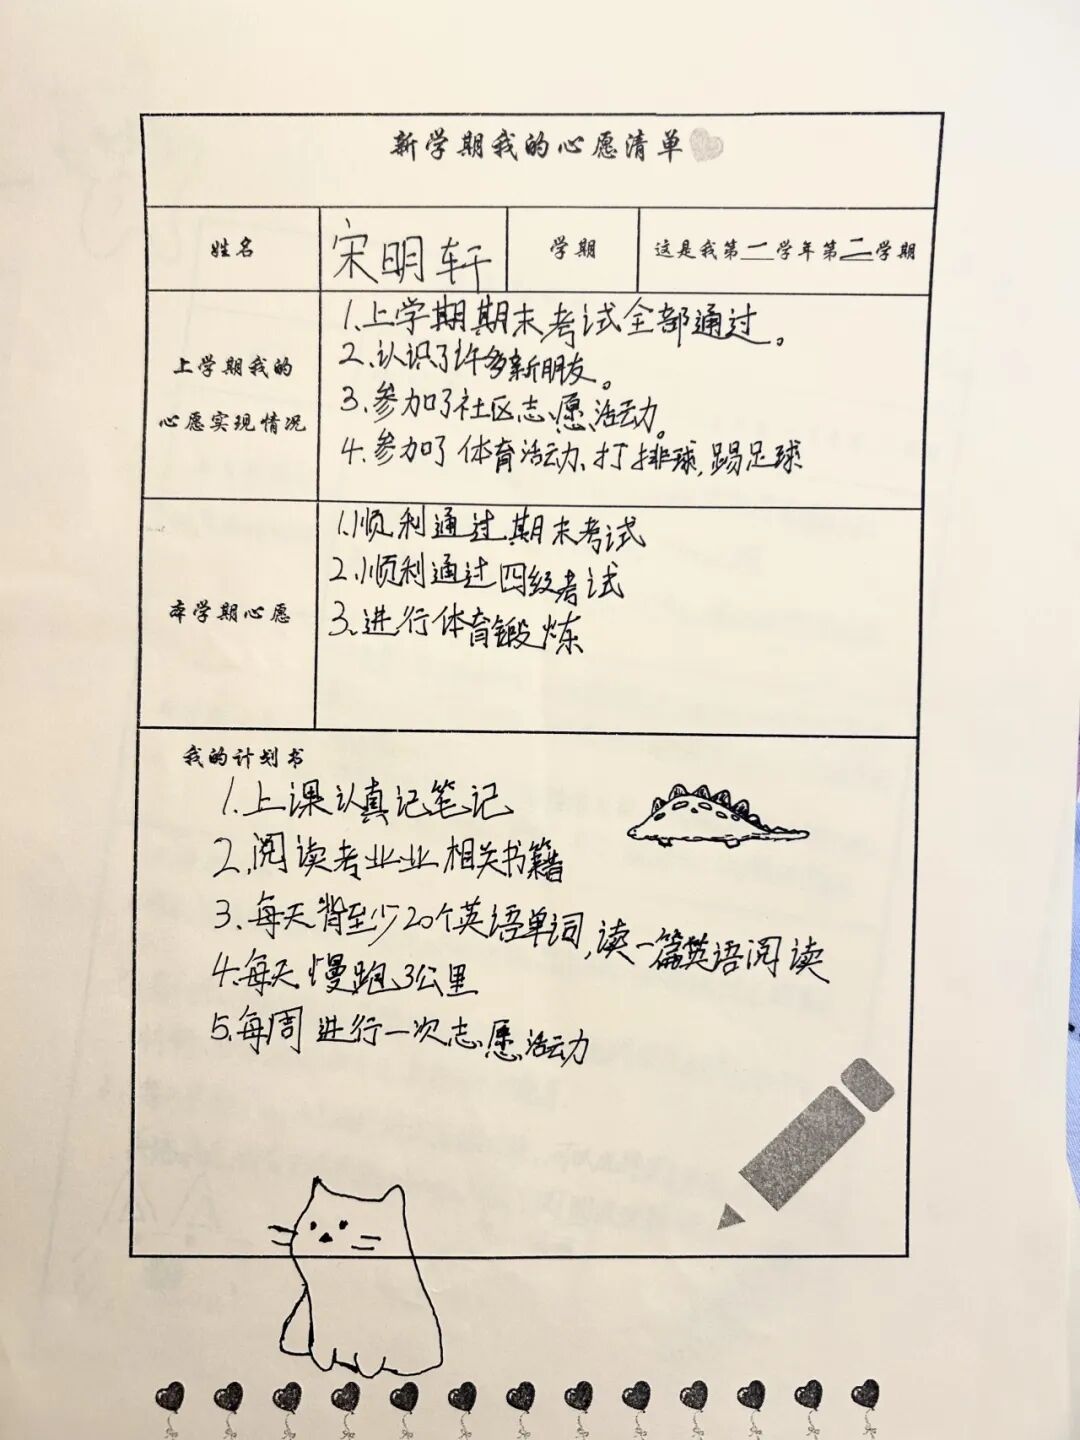 新学期我的心愿清单
姓名 宋明轩 学期 这是我第一学年第二学期
上学期我的
心愿实现情况
1.上学期期末考试全部通过。
2.认识了许多新朋友。
3.参加了社区志愿活动。
4.参加了体育活动、打排球,踢足球
本学期心愿
1.顺利通过期末考试
2.顺利通过四级考试
3.进行体育锻炼
我的计划书
1.上课认真记笔记
2.阅读考业业相关书籍
3.每天背至少20个英语单词,读一篇英语阅读
4.每天慢跑3公里
5.每周进行一次志愿活动